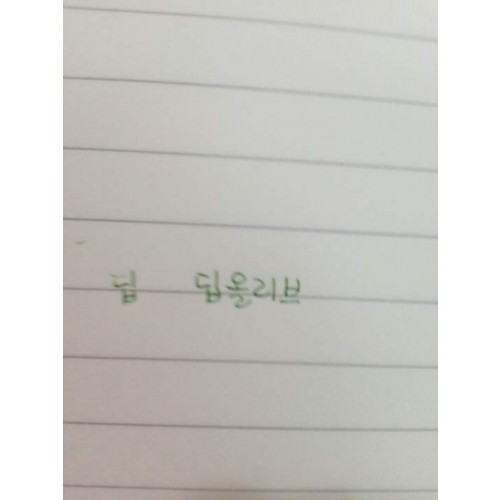 딥 딥올리브